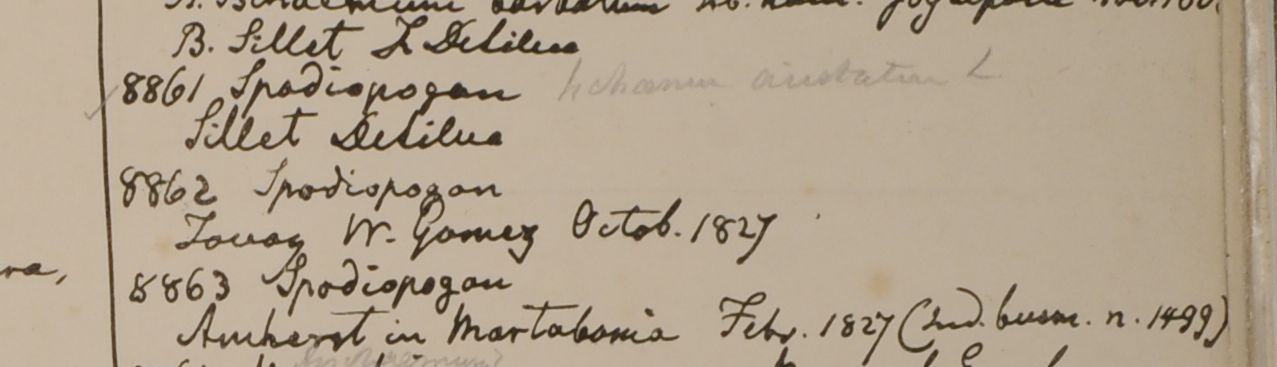 B. Sillet F. DeSilva
8861 Spodiopogon Ischaemum aristatum L
Sillet DeSilva
8862 Spodiopogon
Tavoy W. Gomez Octob. 1827
ra,
8863 Spodiopogon
Amherst in Martabania Febr. 1827 (Ind. burm. n. 1499)